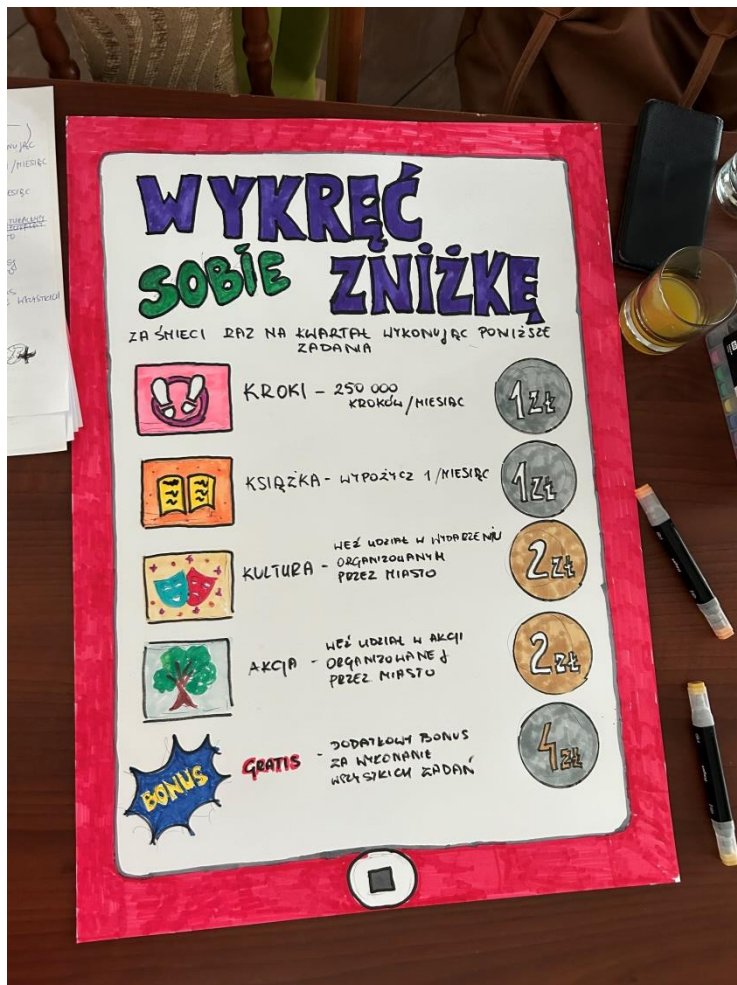 WYKRĘĆ
SOBIE ZNIŻKĘ
ZA ŚMIECI RAZ NA KWARTAŁ WYKONUJĄC PONIŻSZE
ZADANIA
KROKI - 250 000
KROKÓW/MIESIĄC
1 ZŁ
KSIĄŻKA - WYPOŻYCZ 1/MIESIĄC
1 ZŁ
KULTURA - WEŹ UDZIAŁ W WYDARZENIU
ORGANIZOWANYM
PRZEZ MIASTO
2 ZŁ
AKCJA - WEŹ UDZIAŁ W AKCJI
ORGANIZOWANEJ
PRZEZ MIASTO
2 ZŁ
BONUS
GRATIS - DODATKOWY BONUS
ZA WYKONANIE
WSZYSTKICH ZADAŃ
4 ZŁ
/MIESIĄC